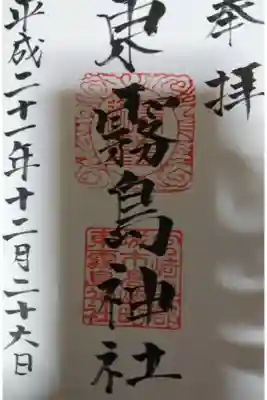 奉拝
東霧島神社
平成二十一年十二月二十六日